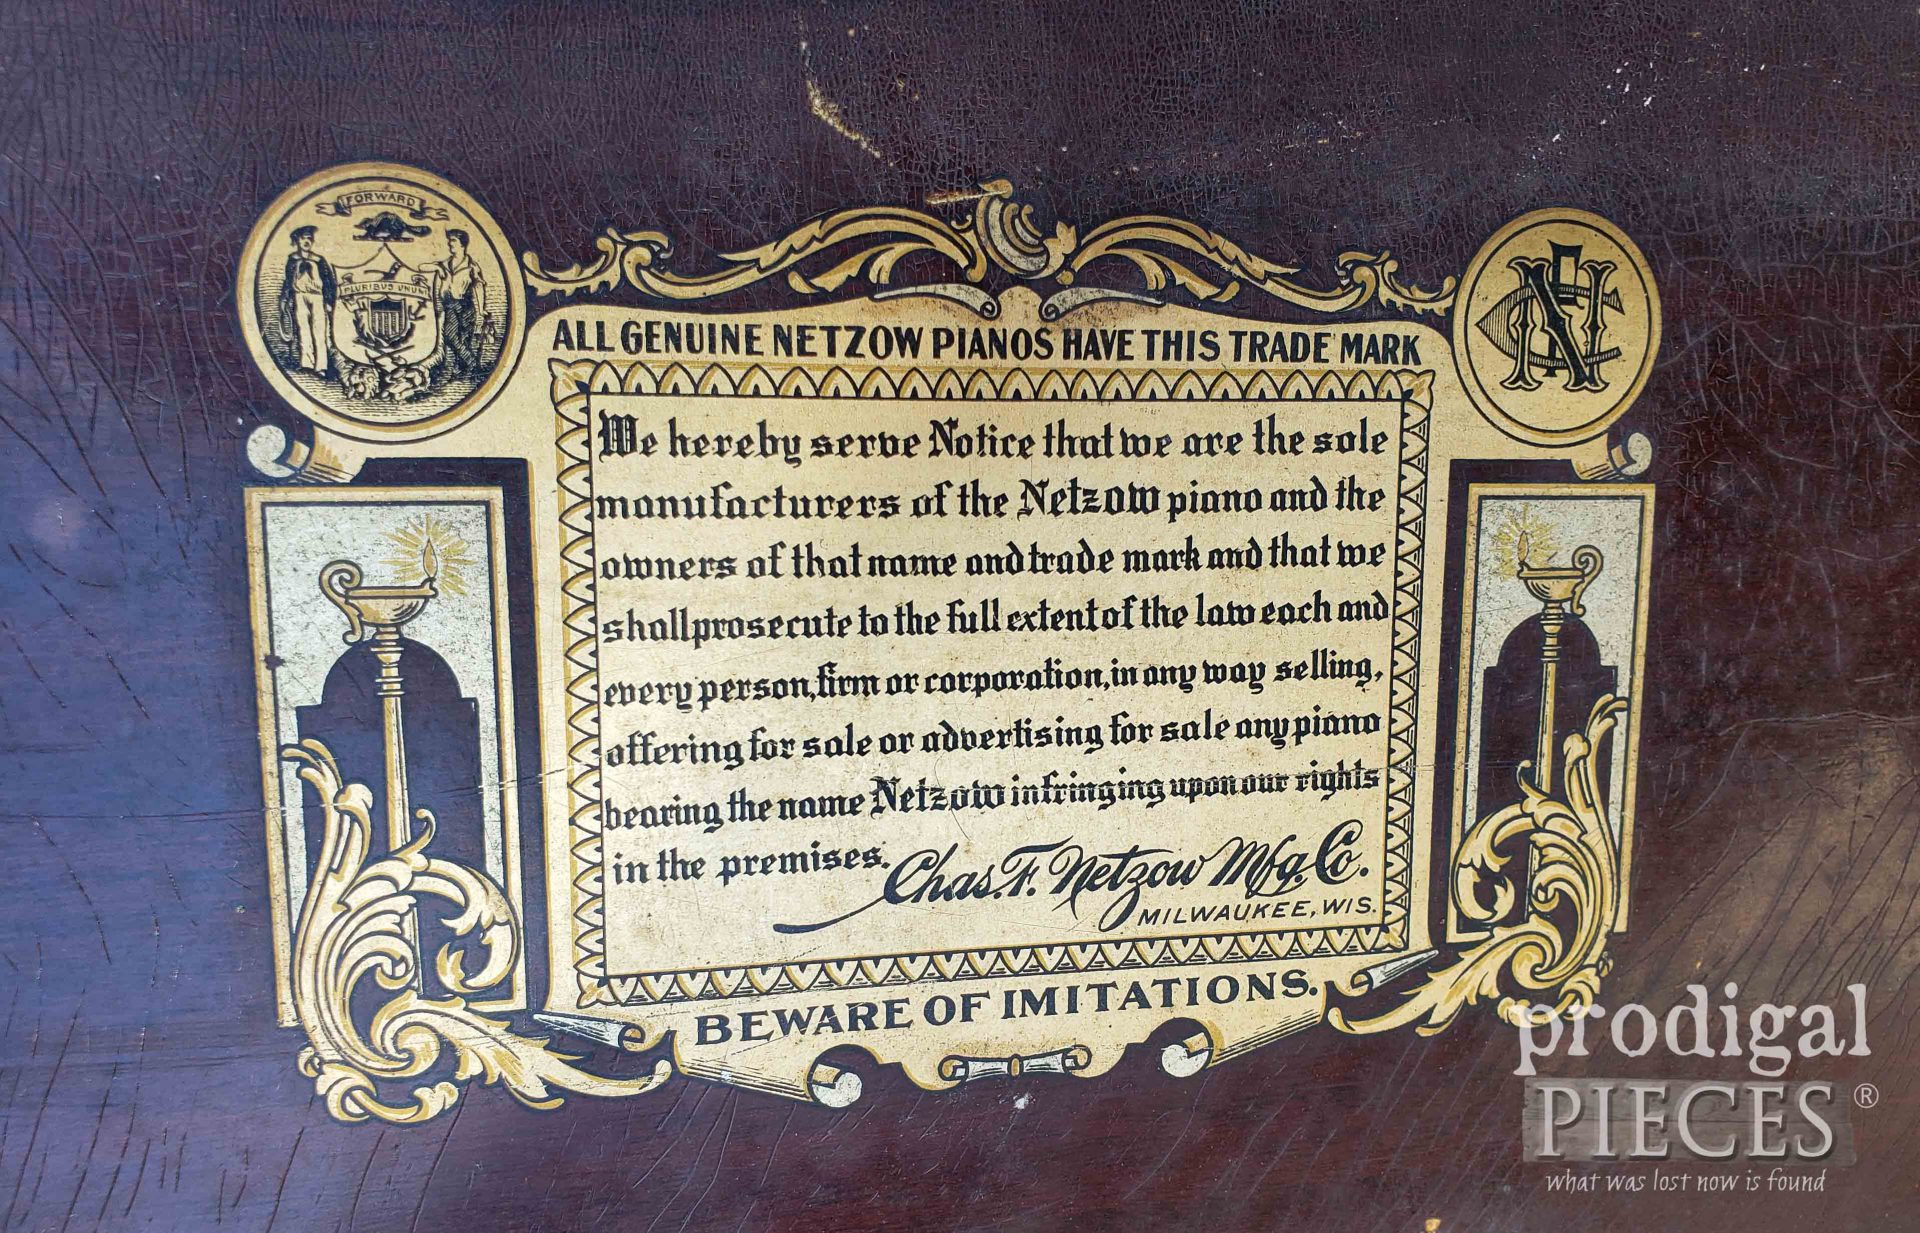 FORWARD
PLURIBUS UNUM
NCF
ALL GENUINE NETZOW PIANOS HAVE THIS TRADE MARK
We hereby serve Notice that we are the sole
manufacturers of the Netzow piano and the
owners of that name and trade mark and that we
shall prosecute to the full extent of the law each and
every person, firm or corporation, in any way selling,
offering for sale or advertising for sale any piano
bearing the name Netzow infringing upon our rights
in the premises.
Chas. F. Netzow Mfg. Co.
MILWAUKEE, WIS.
BEWARE OF IMITATIONS.
prodigal
PIECES®
what was lost now is found